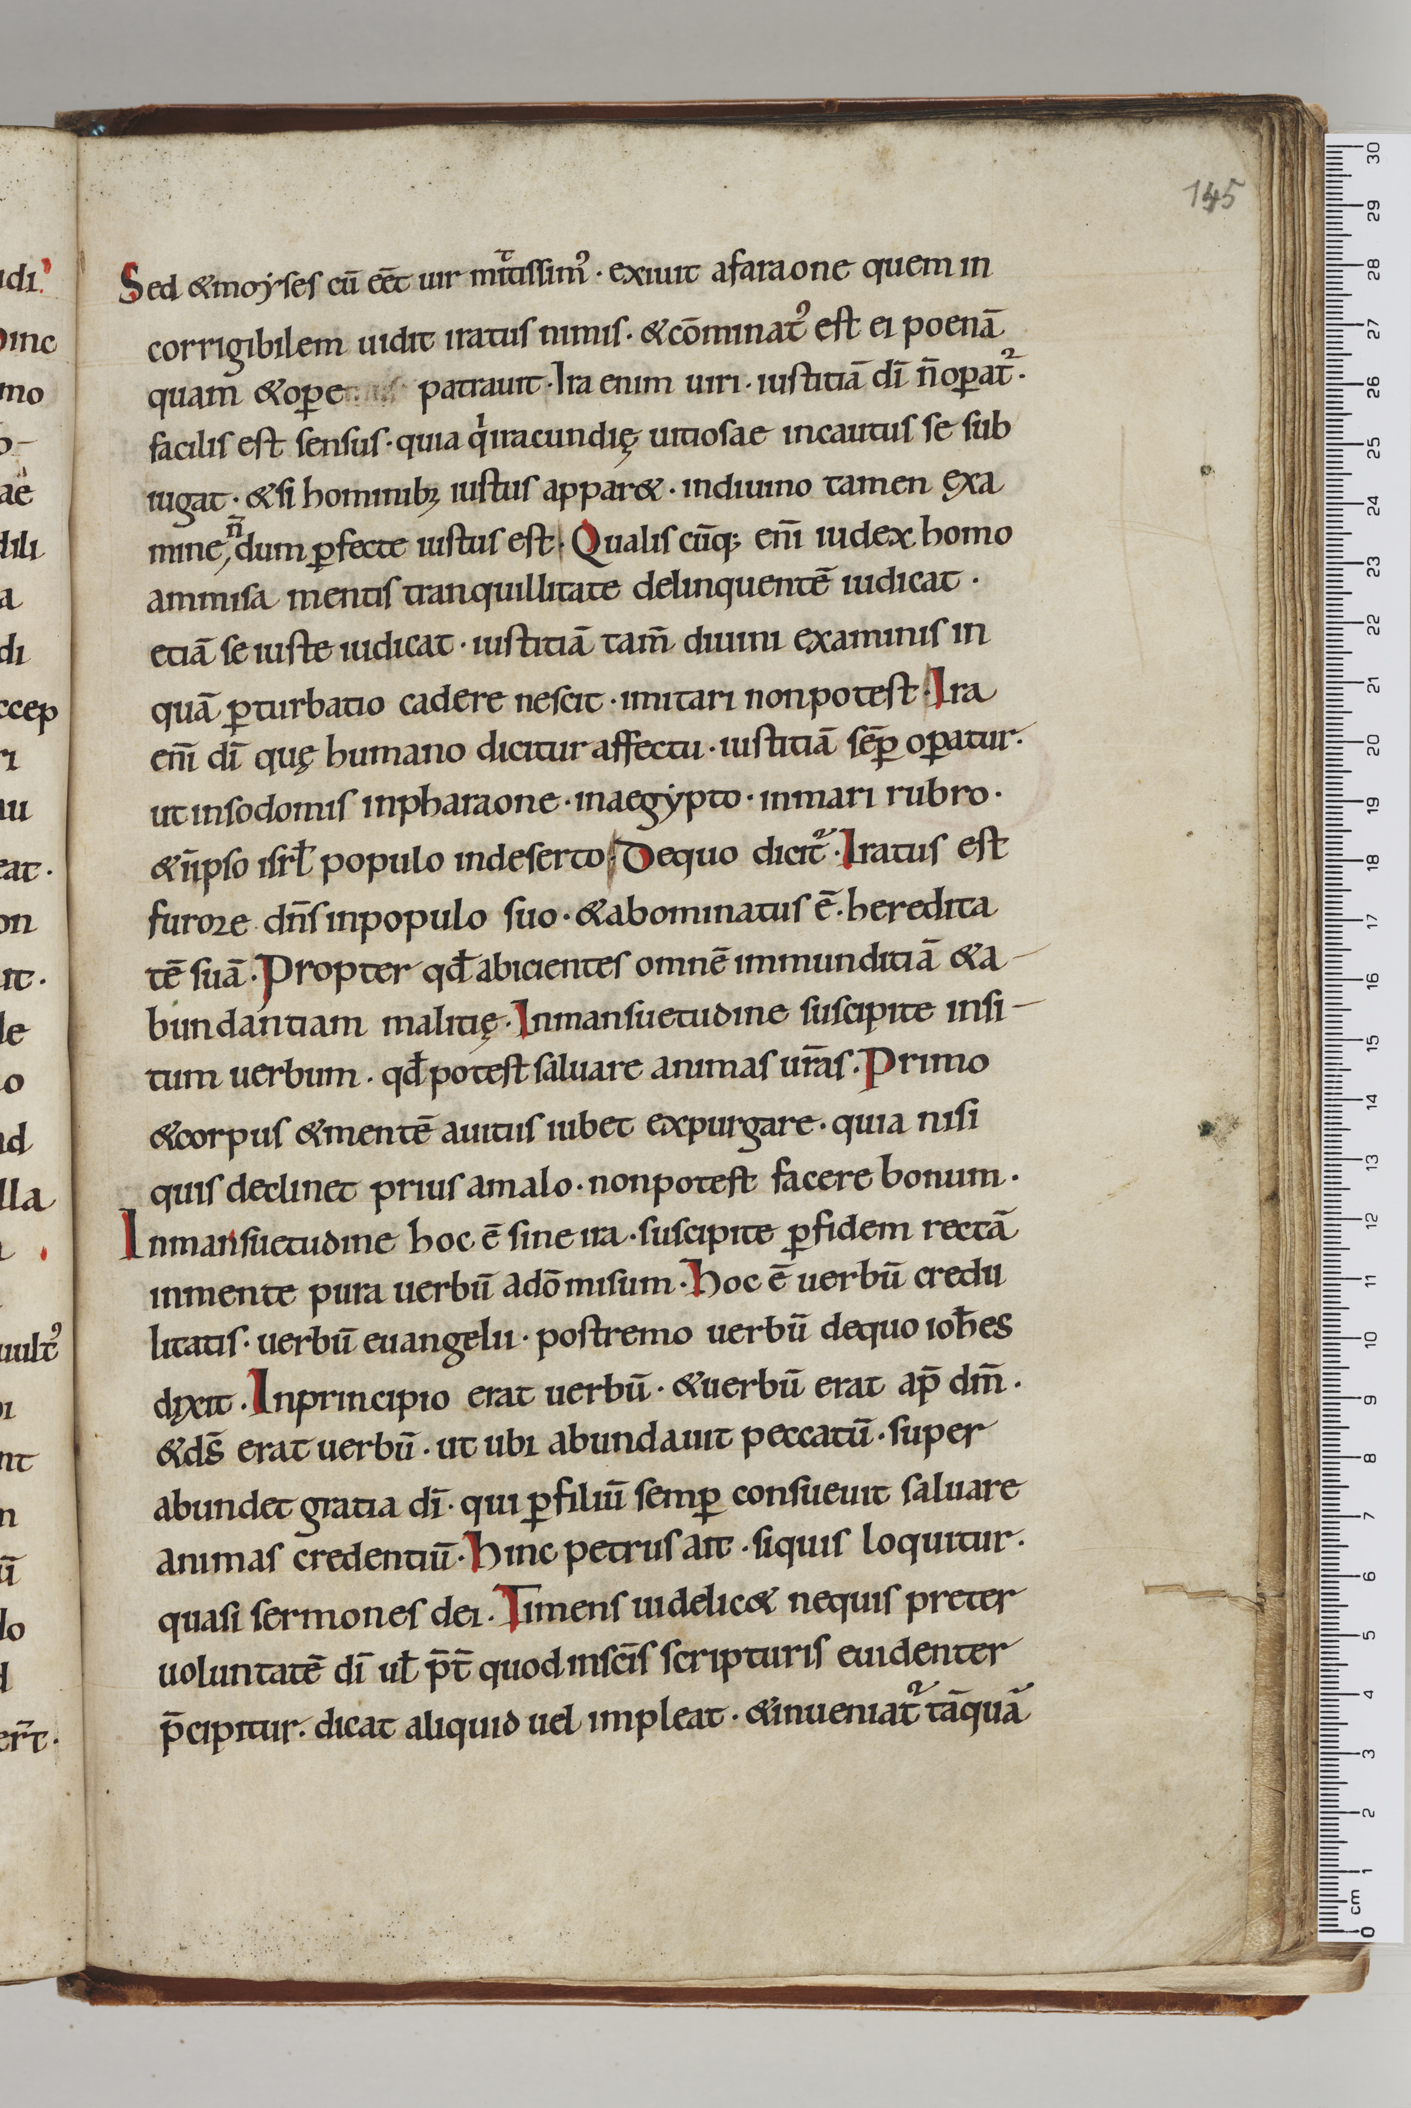 145
Sed &moyses cū eēt uir mitissim᾿ · exiuit afaraone quem in
corrigibilem uidit iratus nimis · &cōminat᾿ est ei poenā
quam &ope patrauit · Ira enim uiri · iustitiā dī n̄ op̲at᷑ ·
facilis est sensus · quia qͥ iracundię uitiosae incautus se sub
iugat · &si hominibꝫ iustus appar& · indiuino tamen exa
mine, n̄dum ꝑfecte iustus est · Qualis cūqꝫ enī iudex homo
ammisa mentis tranquillitate delinquentē iudicat ·
etiā se iuste iudicat · iustitiā tam̄ diuini examinis in
quā ꝑturbatio cadere nescit · imitari nonpotest · Ira
enī dī quę humano dicitur affectu · iustitiā sēꝑ oꝑatur ·
ut insodomis inpharaone · inaegypto · inmari rubro ·
&īipso isrł populo indeserto · Dequo dicit᷑ · Iratus est
furore dn̄s inpopulo suo · &abominatus ē · heredita
tē suā · Propter qđ abicientes omnē immunditiā &a-
bundantiam malitię · Inmansuetudine suscipite insi-
tum uerbum · qđ potest saluare animas ur̄as · Primo
&corpus &mentē auitus iubet expurgare · quia nisi
quis declinet prius amalo · nonpotest facere bonum ·
Inmansuetudine hoc ē sine ira · suscipite ꝑfidem rectā
inmente pura uerbū adō misum · Hoc ē uerbū credu
litatis · uerbū euangelii · postremo uerbū dequo ioħes
dixit · Inprincipio erat uerbū · &uerbū erat ap̄ dm̄ ·
&ds̄ erat uerbū · ut ubi abundauit peccatū · super
abundet gratia dī · qui ꝑfiliū semꝑ consueuit saluare
animas credentiū · Hinc petrus ait · siquis loquitur ·
quasi sermones dei · Timens uidelic& nequis preter
uoluntatē dī uł p̄t̄ quod insc̄is scripturis euidenter
p̄cipitur · dicat aliquid uel impleat · &inueniat᷑ tāquā